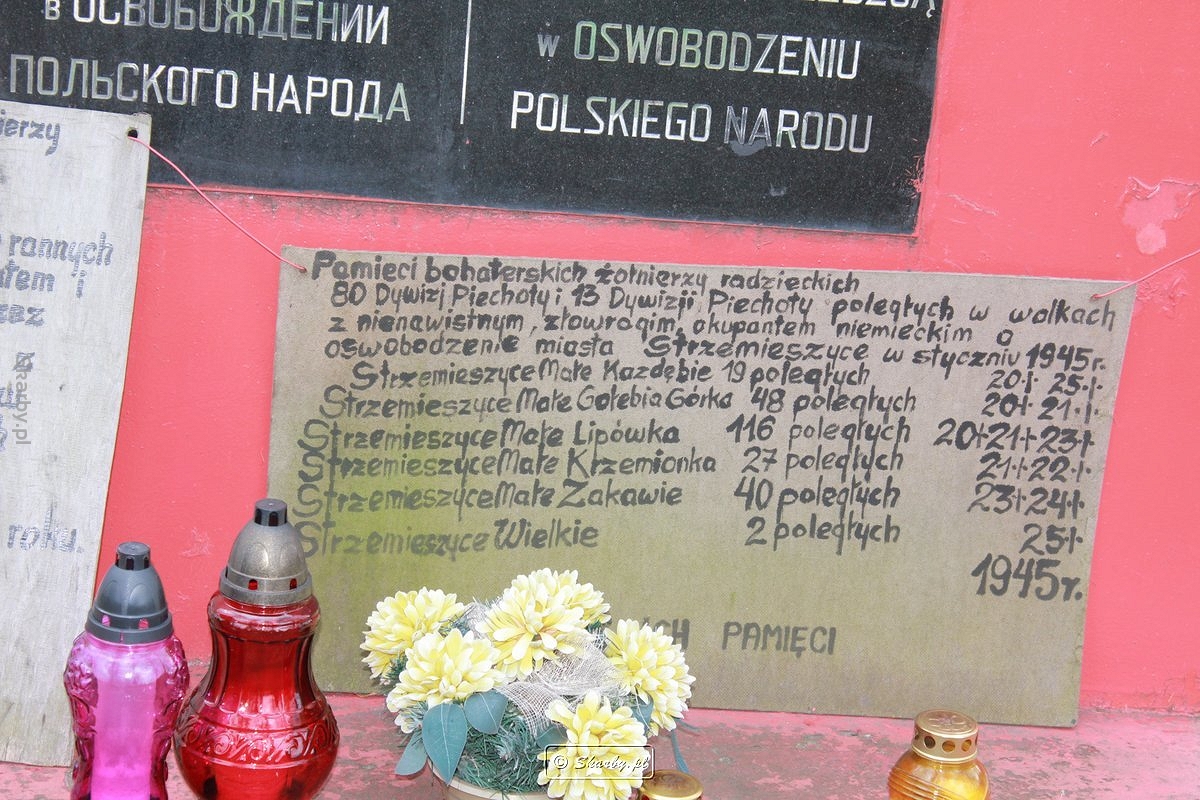 в ОСВОБОЖДЕНИИ
ПОЛЬСКОГО НАРОДА
w OSWOBODZENIU
POLSKIEGO NARODU
rannych
roku.
Pamięci bohaterskich żołnierzy radzieckich
80 Dywizj Piechoty i 13 Dywizji Piechoty poległych w walkach
z nienawistnym, złowrogim, okupantem niemieckim o
oswobodzenie miasta Strzemieszyce w styczniu 1945r.
Strzemieszyce Małe Kazdębie 19 poległych 20.I. 25.I.
Strzemieszyce Małe Gołębia Górka 48 poległych 20.I. 21.I.
Strzemieszyce Małe Lipówka 116 poległych 20.I. 21.I. 23.I.
Strzemieszyce Małe Krzemionka 27 poległych 21.I. 22.I.
Strzemieszyce Małe Zakawie 40 poległych 23.I. 24.I.
Strzemieszyce Wielkie 2 poległych 25.I.
1945r.
ICH PAMIĘCI
skarby.pl
© Skarby.pl